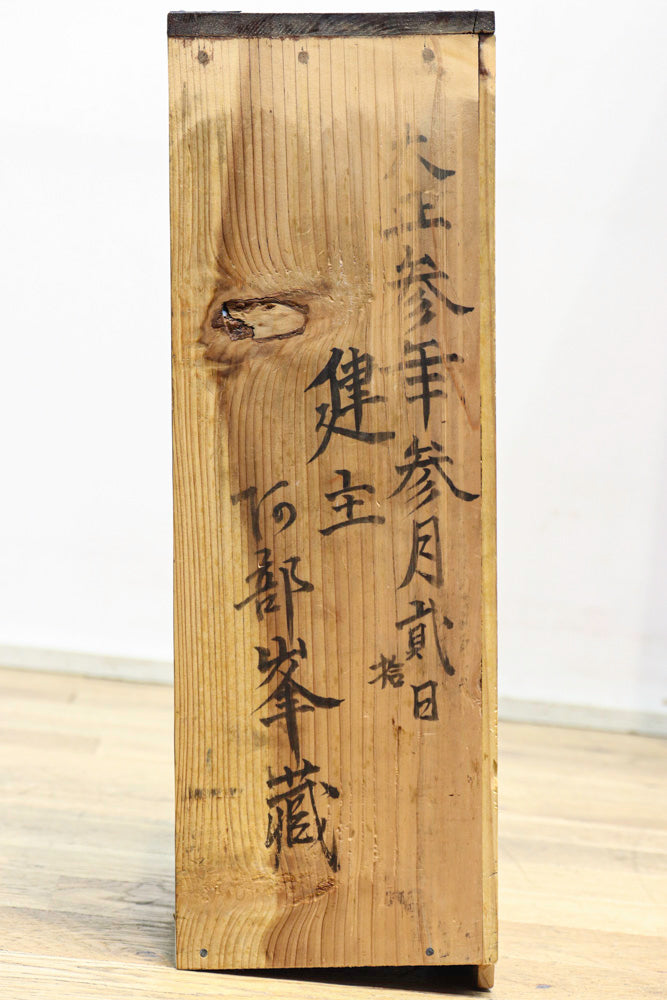 大正参年参月貳拾日
健主
阿部峯藏